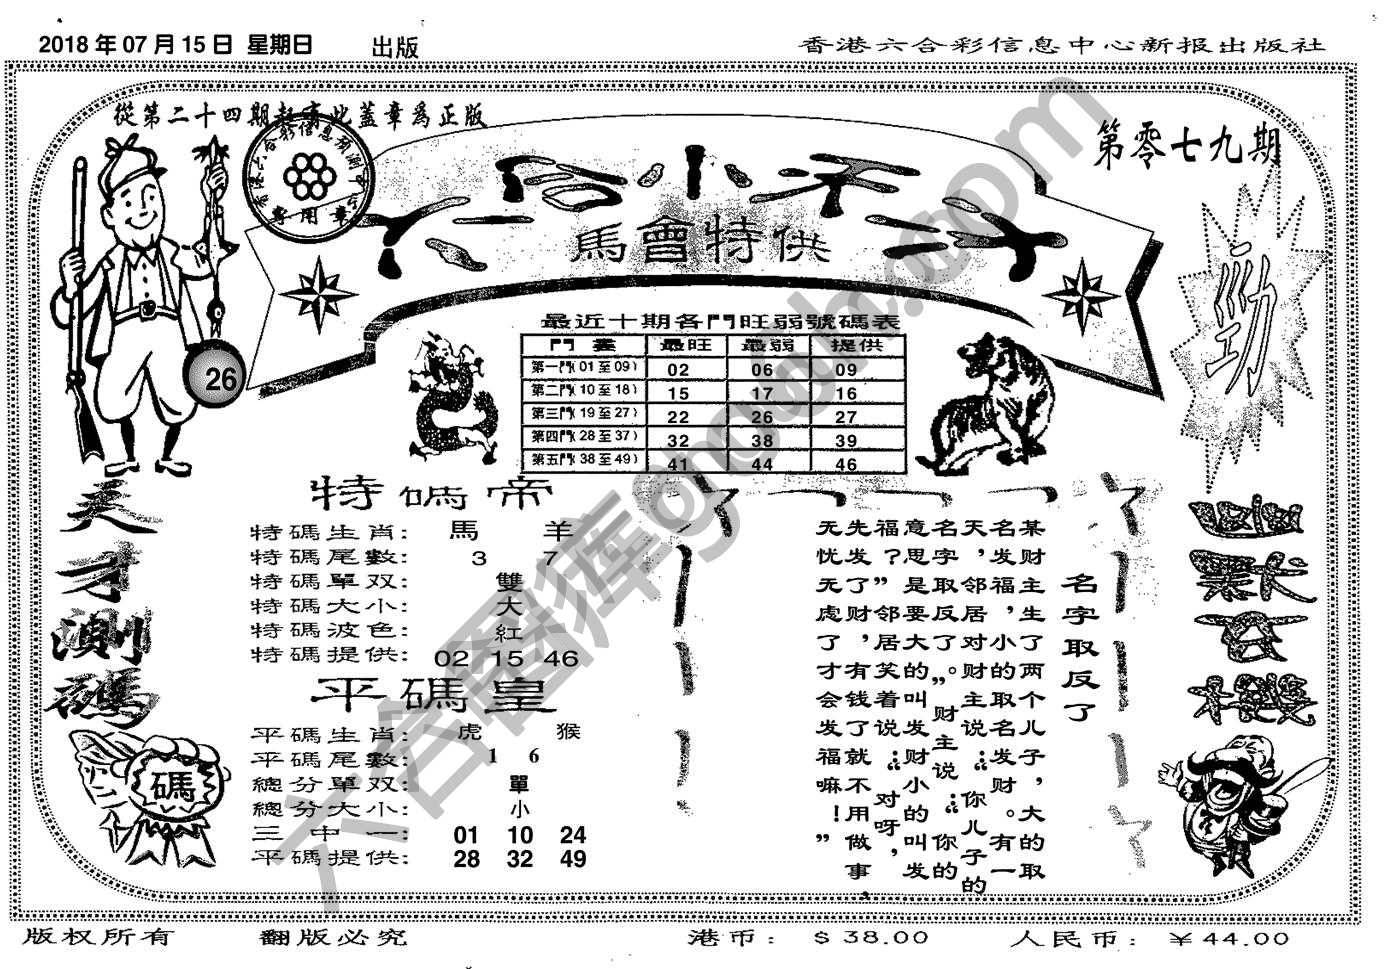 2018年07月15日 星期日 出版
香港六合彩信息中心新报出版社
從第二十四期起 此蓋章爲正版
專用章
第零七九期
六合小天子
馬會特供
勁
26
最近十期各門旺弱號碼表
門 最旺 最弱 提供
第一門(01至09) 02 06 09
第二門(10至18) 15 17 16
第三門(19至27) 22 26 27
第四門(28至37) 32 38 39
第五門(38至49) 41 44 46
天才測碼
碼
特碼帝
特碼生肖: 馬 羊
特碼尾數: 3 7
特碼單双: 雙
特碼大小: 大
特碼波色: 紅
特碼提供: 02 15 46
平碼皇
平碼生肖: 虎 猴
平碼尾數: 1 6
總分單双: 單
總分大小: 小
三中一: 01 10 24
平碼提供: 28 32 49
名字取反了
某财主生了两个儿子，大的取
名发福，小的取名发财。有一
天，邻居对财主说：“你儿子的
名字取反了。”财主说：“你的
意思是要大的叫发财小的叫发
福？”邻居笑着说：“对呀，
先发了财，有钱了就不用做事，
无忧无虑了才会发福嘛！”
六合图库
版权所有 翻版必究 港币: $38.00 人民币: ￥44.00